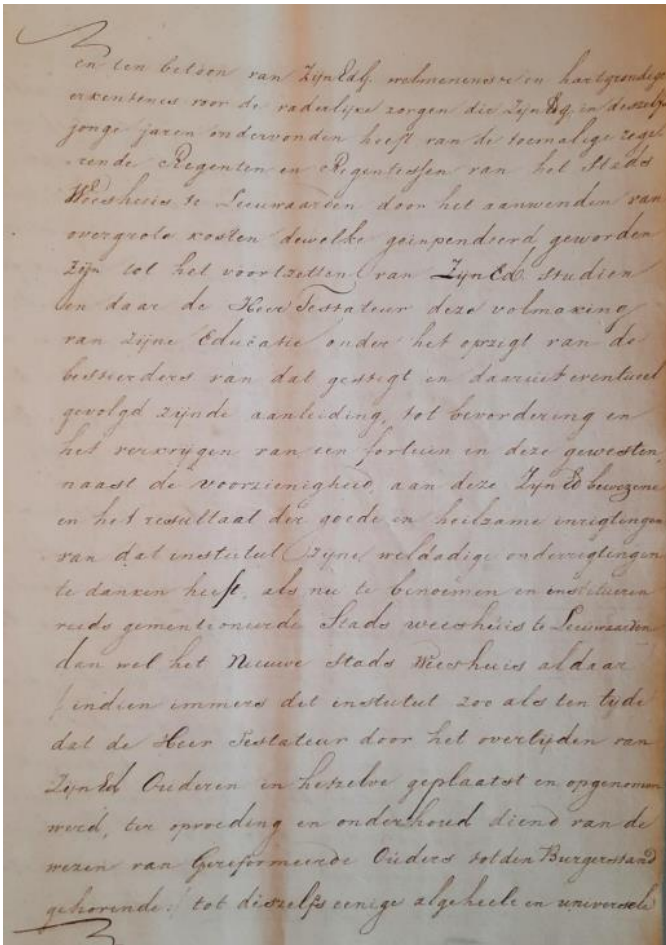 en ten betoon van ZijnEdG. welmenenste en hartgrondige
erkentenes voor de vaderlijke zorgen die ZijnEdG. in deszelfs
jonge jaren ondervonden heeft van de toenmalige rege
rende Regenten en Regentessen van het Stads
Weeshuis te Leeuwaarden door het aanwenden van
overgrote kosten dewelke geimpendeerd geworden
zijn tot het voortzetten van ZijnEd. studien
en daar de Heer Testateur deze volmaking
van zijne Educatie onder het opzigt van de
bestierders van dat gestigt en daaruit eventueel
gevolgd zijnde aanleiding, tot bevordering en
het verkrijgen van een fortuin in deze gewesten,
naast de voorzienigheid, aan deze ZijnEd bewezene
en het resultaat der goede en heilzame inrigtingen
van dat instituut zijne weldadige onderrigtingen
te danken heeft, als nu te benoemen en institueren
reeds gementioneerde Stads weeshuis te Leeuwaarden
dan wel het Nieuwe Stads Weeshuis aldaar
/ indien immers dit instutut zoo als ten tyde
dat de Heer Testateur door het overlijden van
ZijnEd Ouderen in hetzelve geplaatst en opgenomen
werd, ter opvoeding en onderhoud diend van de
wezen van Gereformeerde Ouders tot den Burgerstand
gehorende :/ tot diszelfs eenige algeheele en universele